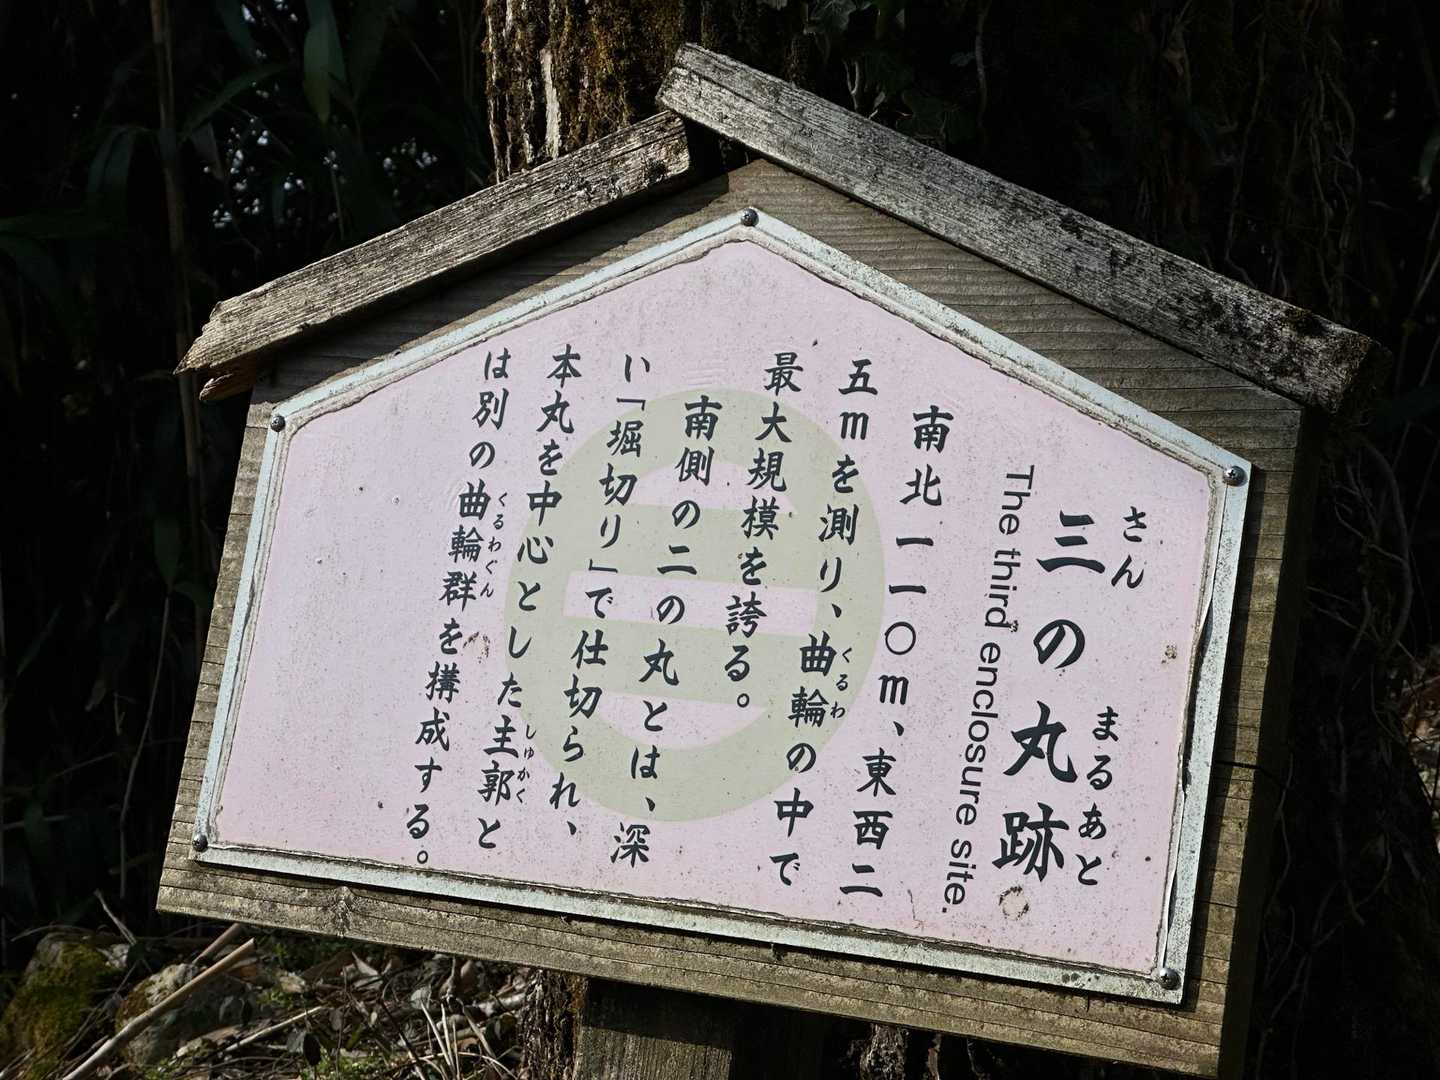 さん まるあと
三の丸跡
The third enclosure site.
南北一一〇m、東西二
五mを測り、曲輪の中で
くるわ
最大規模を誇る。
南側の二の丸とは、深
い「堀切り」で仕切られ、
本丸を中心とした主郭と
しゅかく
は別の曲輪群を構成する。
くるわぐん